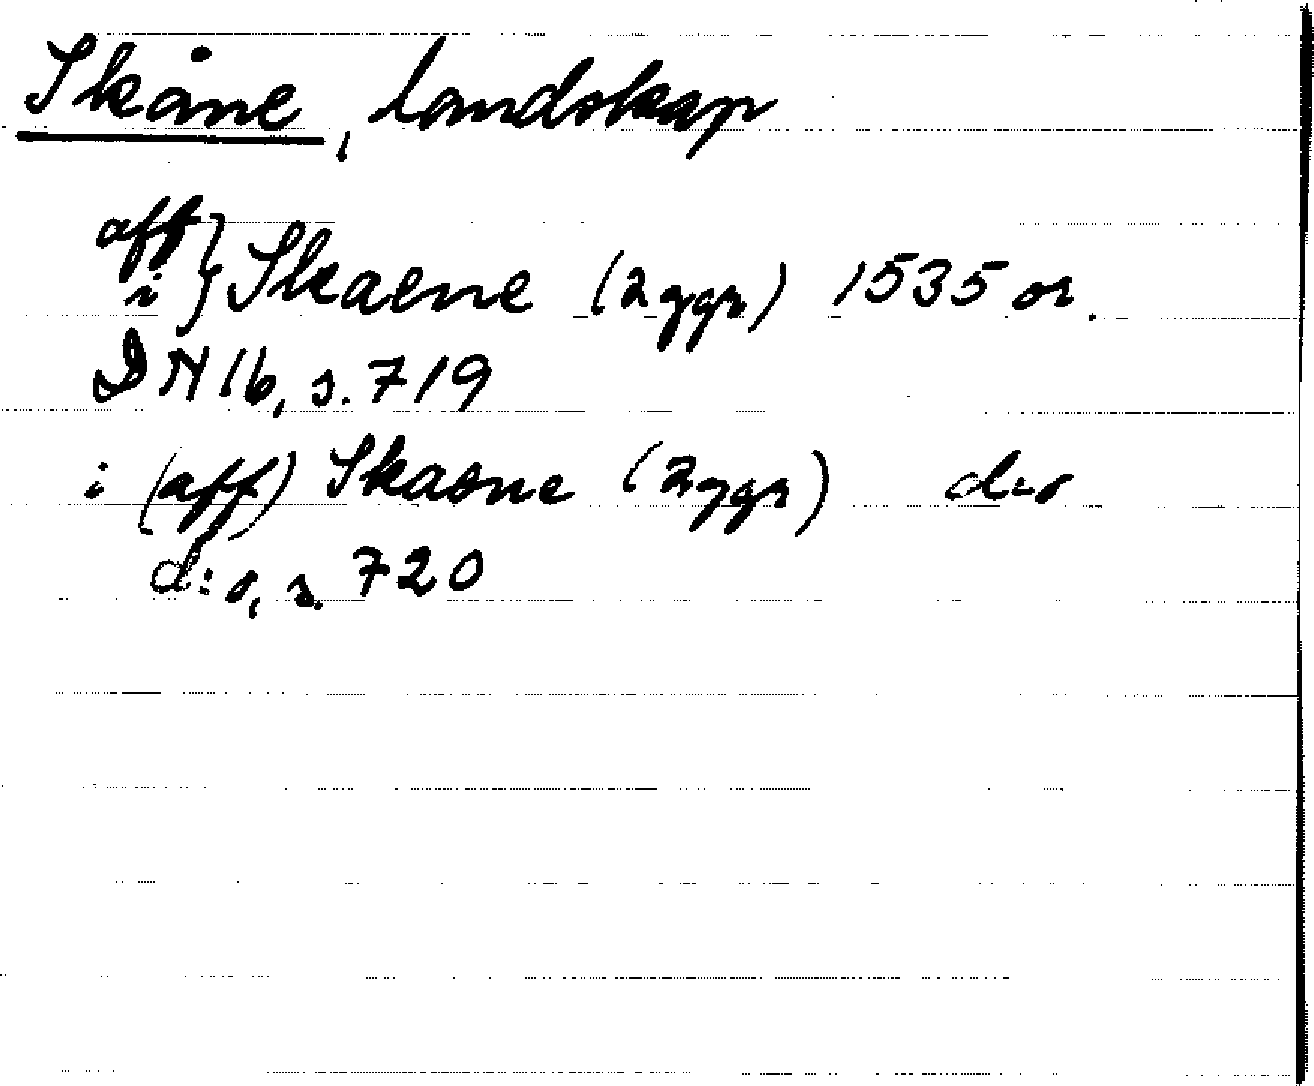 Skåne, landskap
aff
i } Skaene (2 ggr) 1535 or.
DN 16, s. 719
i (aff) Skaane (2 ggr) d:o
d:o, s. 720